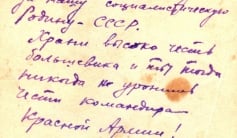 за нашу социалистическую
Родину – СССР.
Храни высоко честь
большевика и ты тогда
никогда не уронишь
чести командира
Красной Армии!